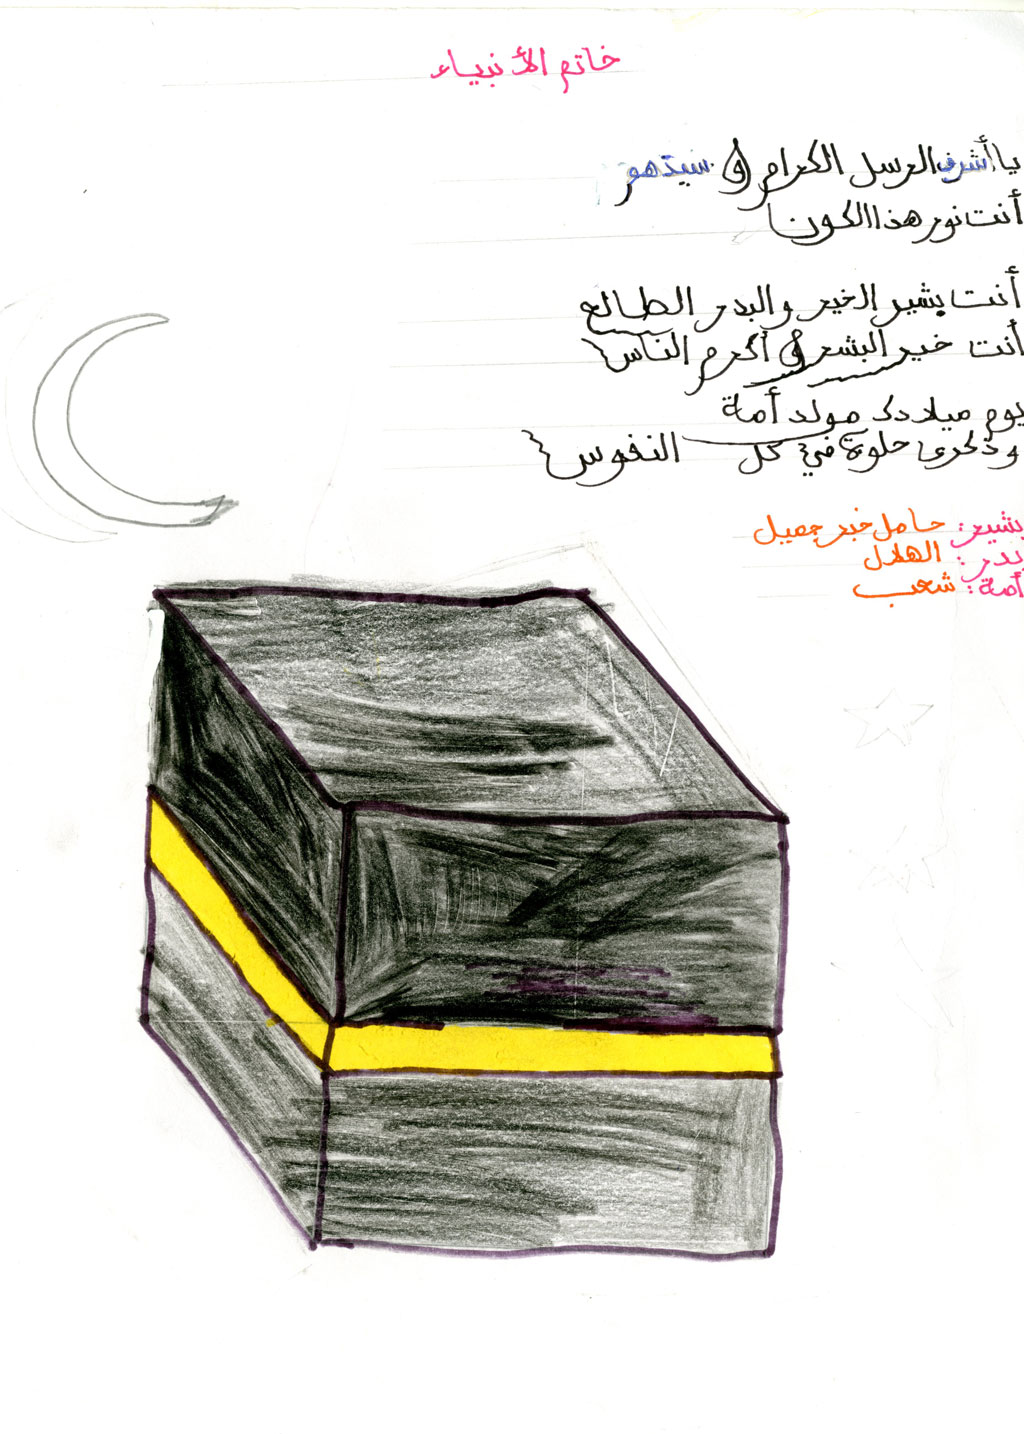 خاتم الأنبياء
يا أشرف الرسل الكرام و سيدهم
أنت نور هذا الكون
أنت بشير الخير والبدر الطالع
أنت خير البشر و أكرم الناس
يوم ميلادك مولد أمة
وذكرى حلوة في كل النفوس
بشير: حامل خبر جميل
بدر: الهلال
أمة: شعب